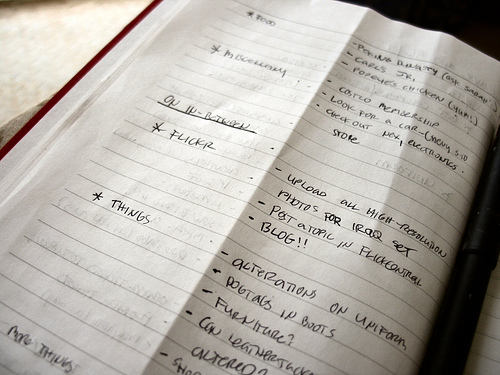 * FOOD
- PEKING DYNASTY (ASK SARAH
- CARL'S JR.
- POPEYE'S CHICKEN (YUM!)
* MISCELLANY
- COSTCO MEMBERSHIP
- LOOK FOR A CAR
- CHECK OUT NEX, ELECTRONICS
STORE
ON IN-BETWEEN
* FLICKR
- UPLOAD ALL HIGH-RESOLUTION
PHOTOS FOR IRAQ SET
- POST A TOPIC IN FLICKRCENTRAL
- BLOG!!
* THINGS
- ALTERATIONS ON UNIFORM
- DOGTAGS IN BOOTS
- FURNITURE?
- CAN LEATHERJACKE
ALTERED
MORE THINGS